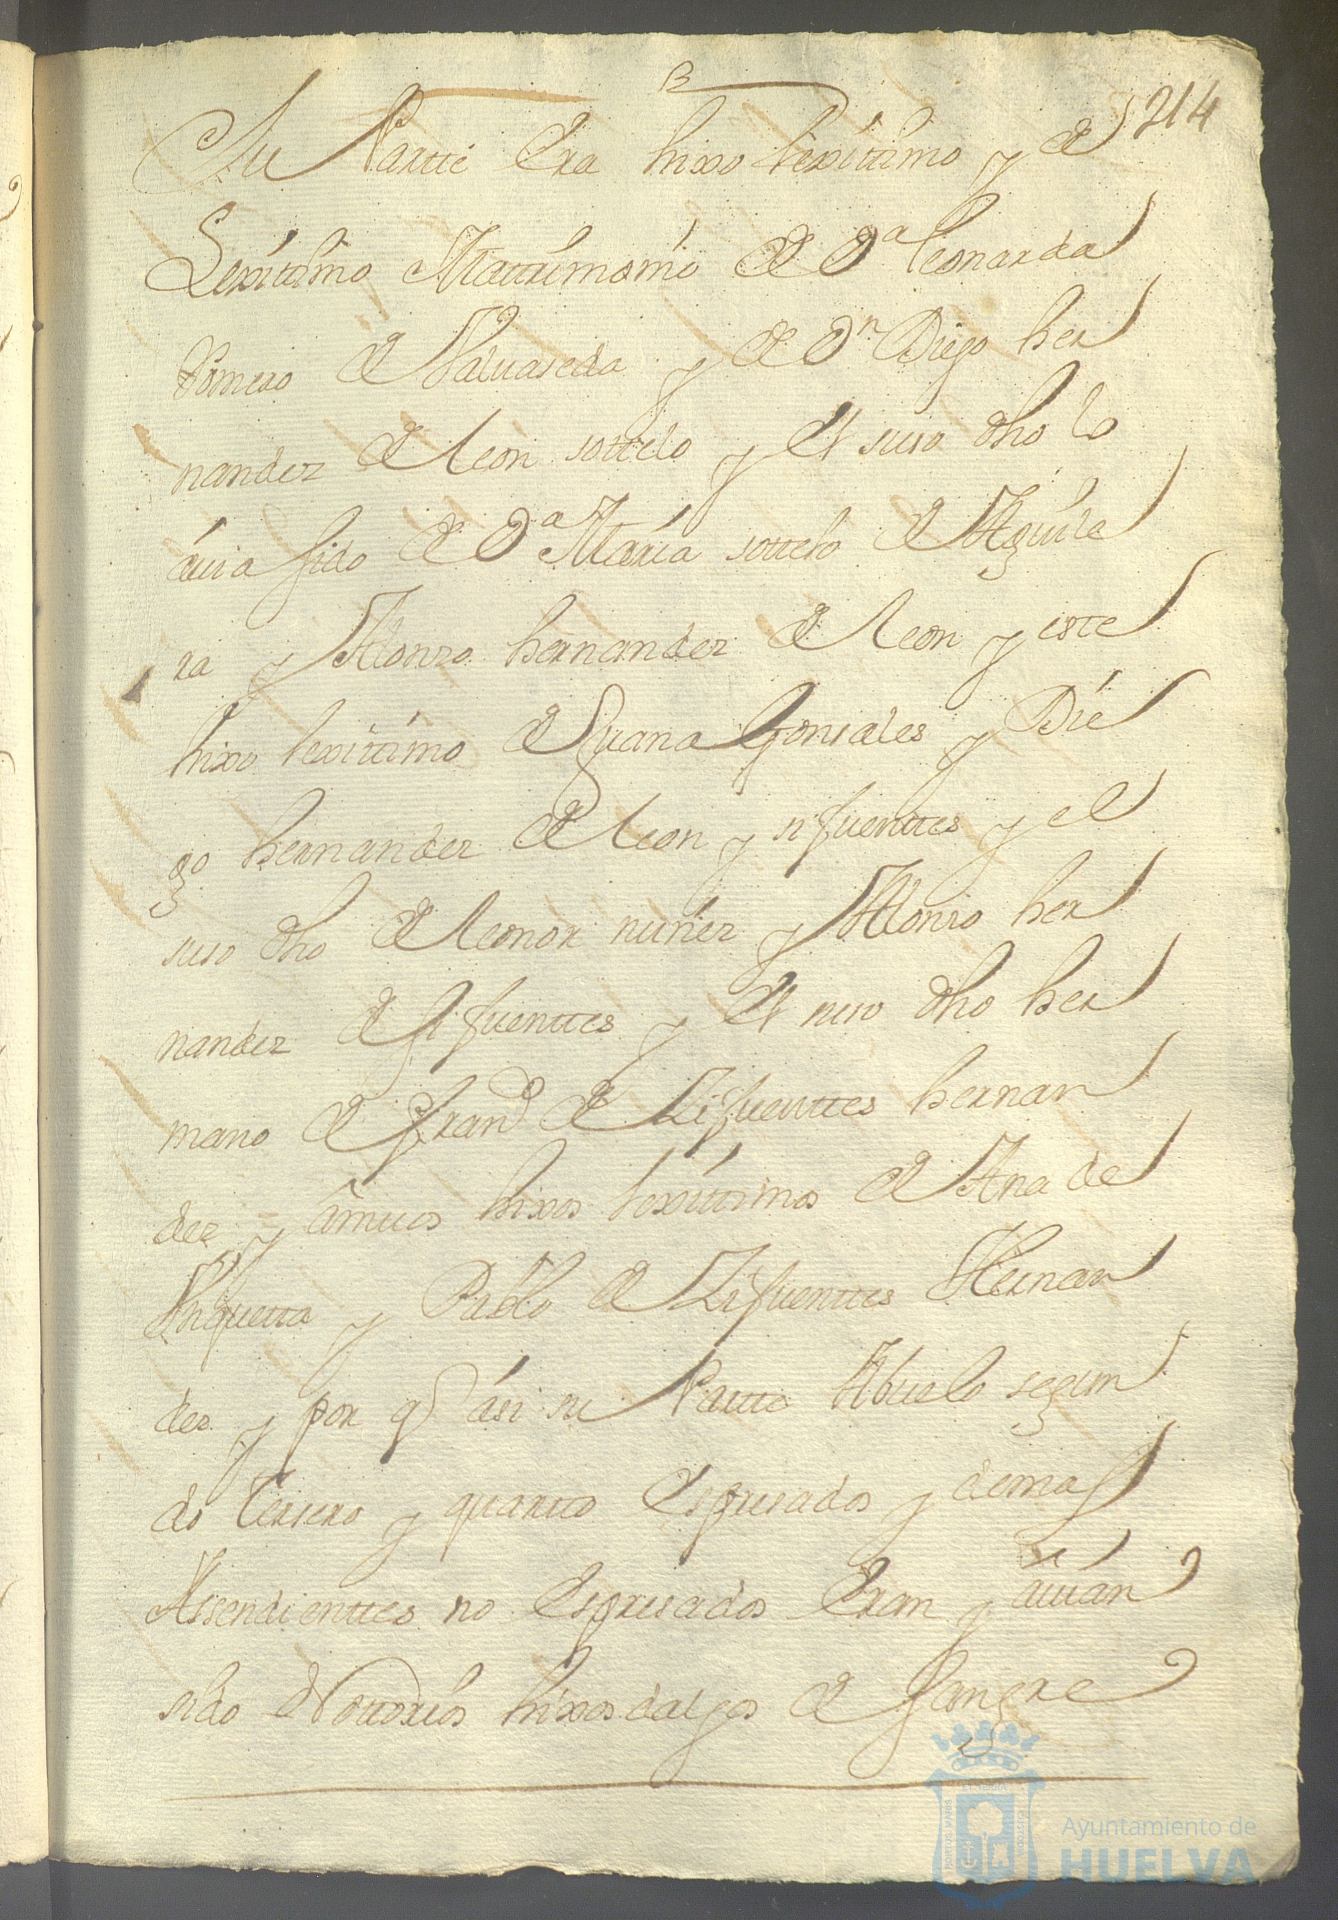 214
Su Partte Era hixo lexittimo y de
Lexittimo Mattrimomio de Da leonarda
Romero de Valuaseda y de Dn Diego her
nandez de leon sottelo y el suso dho lo
áuia sido de Da María sottelo de Aguile
ra y Alonzo hernandez de leon y este
hixo lexittimo de Juana Gonsales y Die
go hernandez de leon y sifuenttes y el
suso dho de leonor nuñez y Alonso her
nandez de sifuenttes y el suso dho her
mano de Frando de Zifuenttes hernan
dez y ámuos hixos lexittimos de Ana de
y Pablo de Zifuenttes Hernan
dez y por q ási su Partte Abuelo segun
do tersero y quarto Espresados y demas
Assendienttes no Espresados Eran y áuian
sido Nottorios hixosdalgos de Sangre
Ayuntamiento de
HUELVA